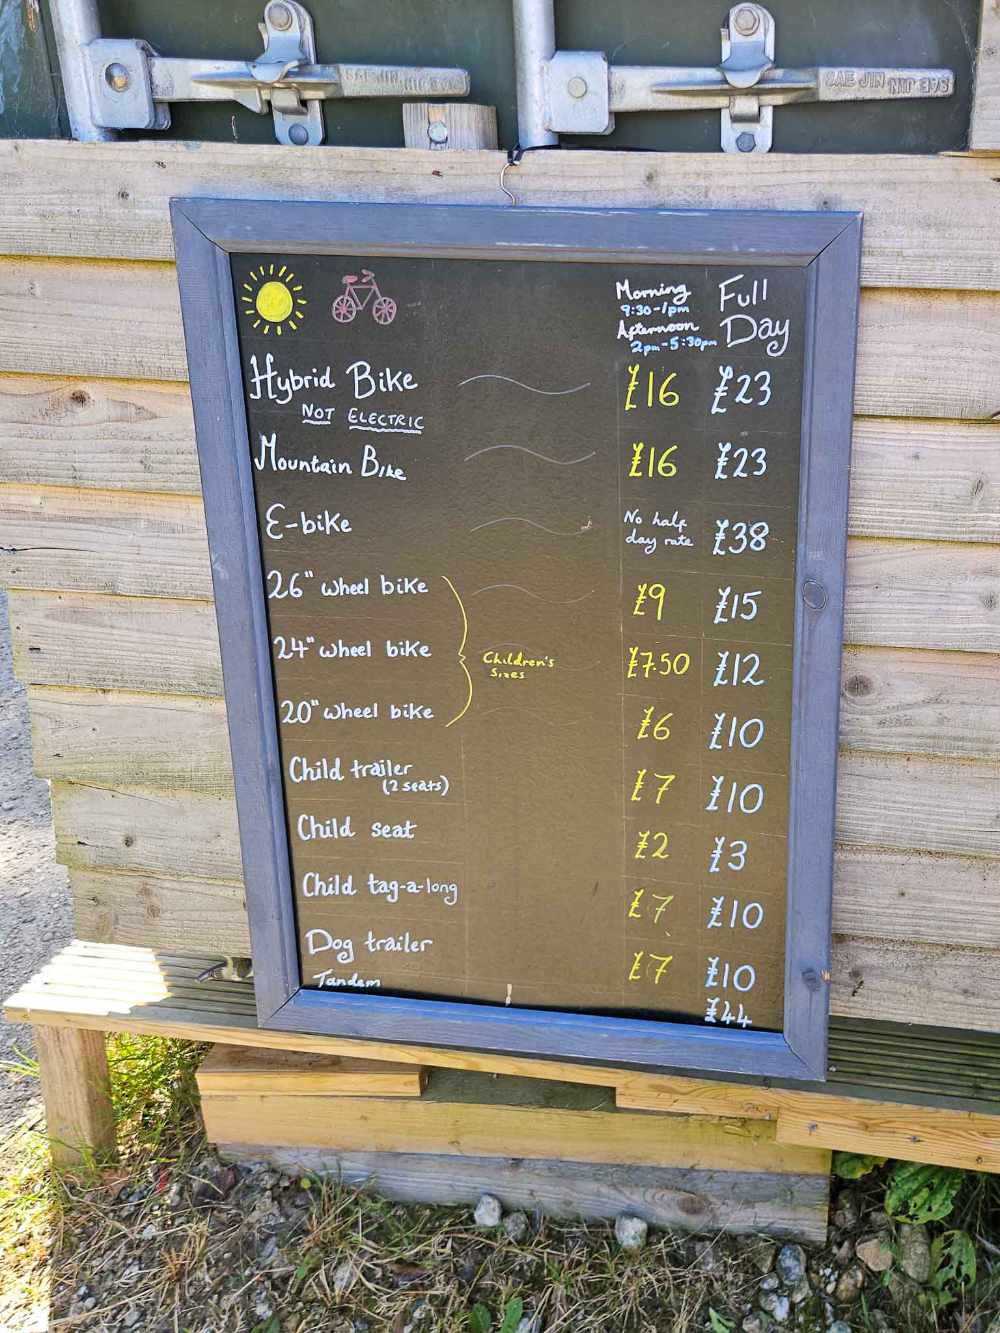 SAE JIN NIC 39S
SAE JIN NIC 39S
Morning
9:30-1pm
Afternoon
2pm-5:30pm
Full
Day
Hybrid Bike £16 £23
NOT ELECTRIC
Mountain Bike £16 £23
E-bike No half
day rate £38
26" wheel bike £9 £15
24" wheel bike £7.50 £12
Children's
Sizes
20" wheel bike £6 £10
Child trailer £7 £10
(2 seats)
Child seat £2 £3
Child tag-a-long £7 £10
Dog trailer £7 £10
Tandem £44